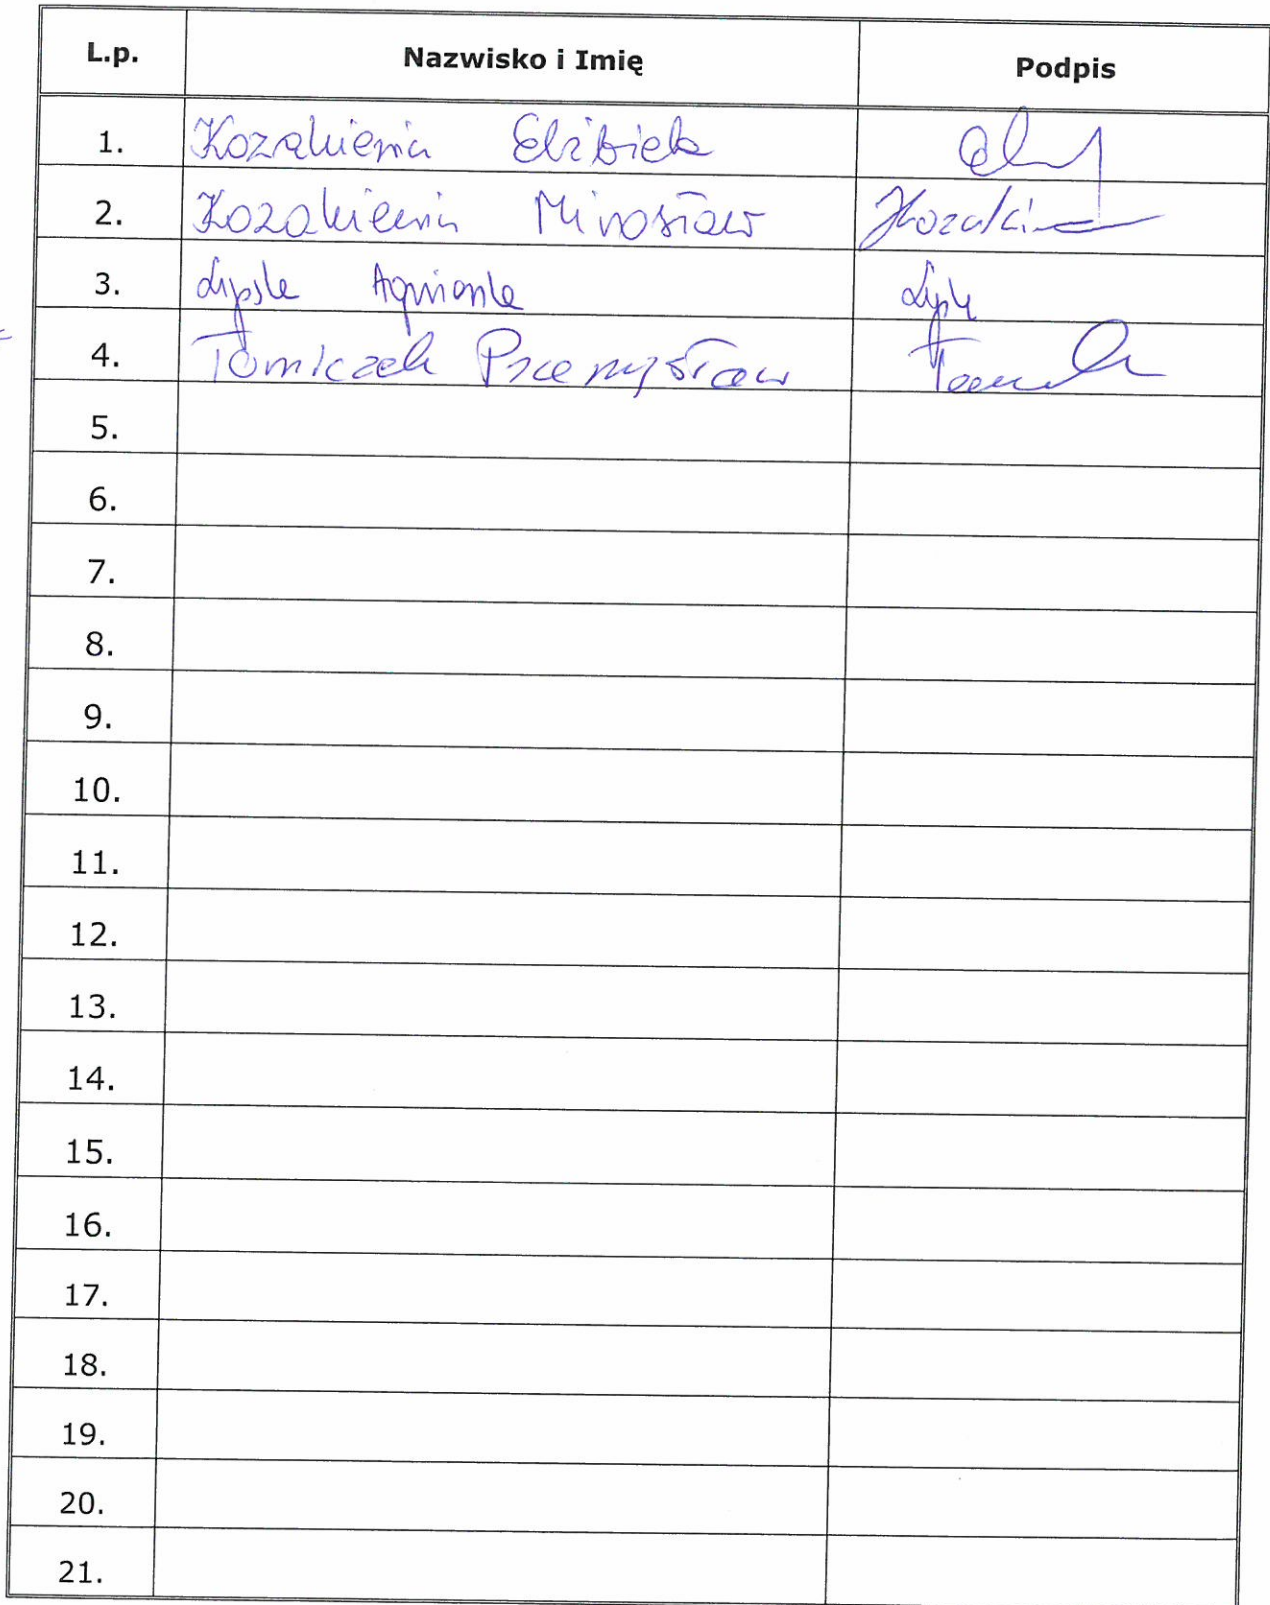 L.p. Nazwisko i Imię Podpis
1. Kozakiewicz Elżbieta
2. Kozakiewicz Mirosław Kozaki
3. Lipska Agnieszka
4. Tomiczek Przemysław
5.
6.
7.
8.
9.
10.
11.
12.
13.
14.
15.
16.
17.
18.
19.
20.
21.